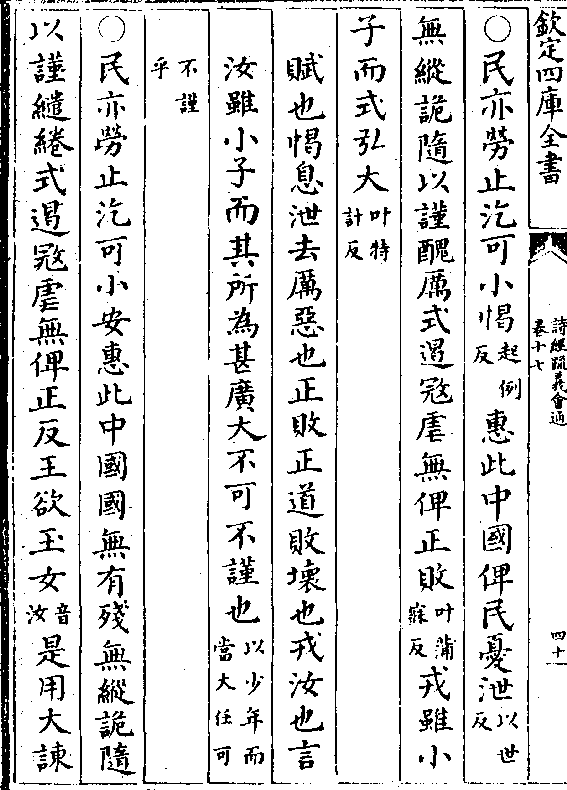 欽定四庫全書
詩經疏義會通
卷十七
四十一
○民亦勞止汔可小愒起例反惠此中國俾民憂泄以世反
無縱詭隨以謹醜厲式遏寇虐無俾正敗叶蒲寐反戎雖小
子而式弘大叶特計反
賦也愒息泄去厲惡也正敗正道敗壞也戎汝也言
汝雖小子而其所為甚廣大不可不謹也以少年而當大任可
不謹乎
○民亦勞止汔可小安惠此中國國無有殘無縱詭隨
以謹繾綣式遏寇虐無俾正反王欲玉女音汝是用大諫